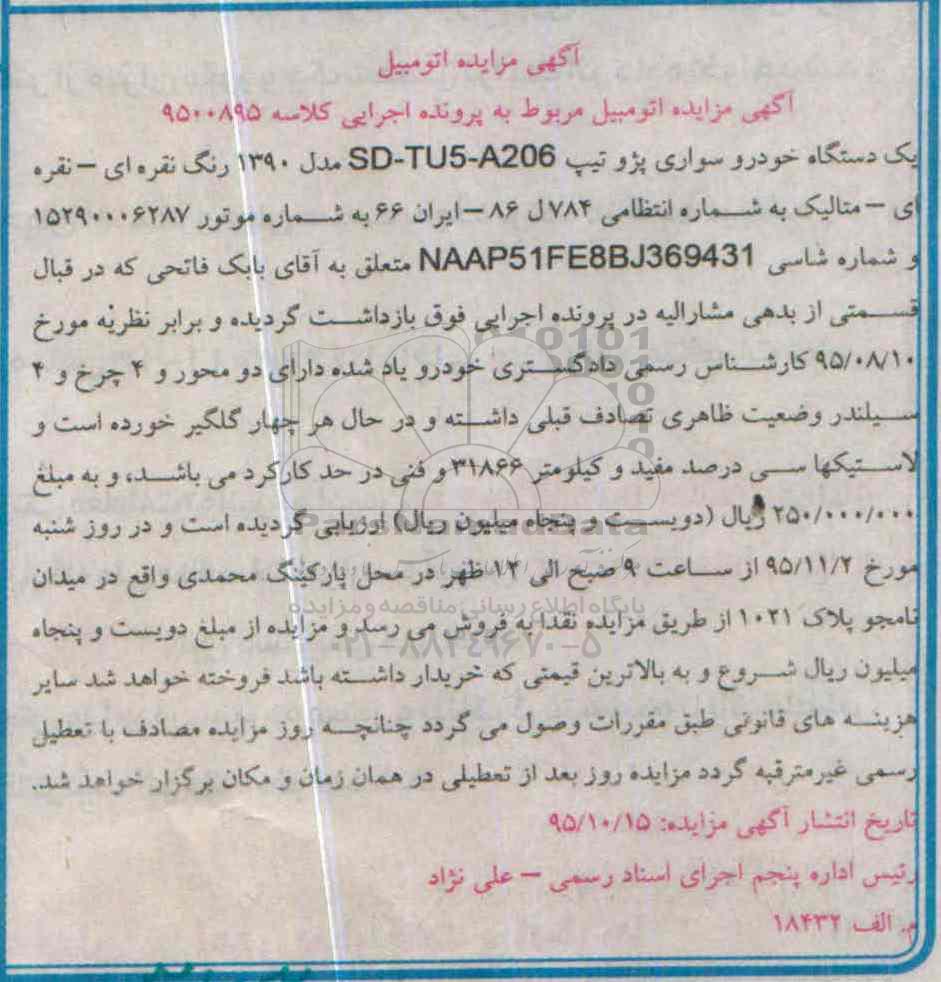 آگهی مزایده اتومبیل
آگهی مزایده اتومبیل مربوط به پرونده اجرایی کلاسه ۹۵۰۰۸۹۵
یک دستگاه خودرو سواری پژو تیپ SD-TU5-A206 مدل ۱۳۹۰ رنگ نقره ای – نقره
ای – متالیک به شماره انتظامی ۷۸۴ ل ۸۶ – ایران ۶۶ به شماره موتور ۱۵۲۹۰۰۰۶۲۸۷
و شماره شاسی NAAP51FE8BJ369431 متعلق به آقای بابک فاتحی که در قبال
قسمتی از بدهی مشارالیه در پرونده اجرایی فوق بازداشت گردیده و برابر نظریه مورخ
۹۵/۰۸/۱۰ کارشناس رسمی دادگستری خودرو یاد شده دارای دو محور و ۴ چرخ و ۴
سیلندر وضعیت ظاهری تصادف قبلی داشته و در حال هر چهار گلگیر خورده است و
لاستیکها سی درصد مفید و کیلومتر ۳۱۸۶۶ و فنی در حد کارکرد می باشد، و به مبلغ
۲۵۰/۰۰۰/۰۰۰ ریال (دویست و پنجاه میلیون ریال) ارزیابی گردیده است و در روز شنبه
مورخ ۹۵/۱۱/۲ از ساعت ۹ صبح الی ۱۲ ظهر در محل پارکینگ محمدی واقع در میدان
نامجو پلاک ۱۰۲۱ از طریق مزایده نقدا به فروش می رسد و مزایده از مبلغ دویست و پنجاه
میلیون ریال شروع و به بالاترین قیمتی که خریدار داشته باشد فروخته خواهد شد سایر
هزینه های قانونی طبق مقررات وصول می گردد چنانچه روز مزایده مصادف با تعطیل
رسمی غیرمترقبه گردد مزایده روز بعد از تعطیلی در همان زمان و مکان برگزار خواهد شد.
تاریخ انتشار آگهی مزایده: ۹۵/۱۰/۱۵
رئیس اداره پنجم اجرای اسناد رسمی – علی نژاد
م. الف ۱۸۴۳۲
پایگاه اطلاع رسانی مناقصه و مزایده
۰۲۱-۸۸۳۴۹۶۷۰-۵